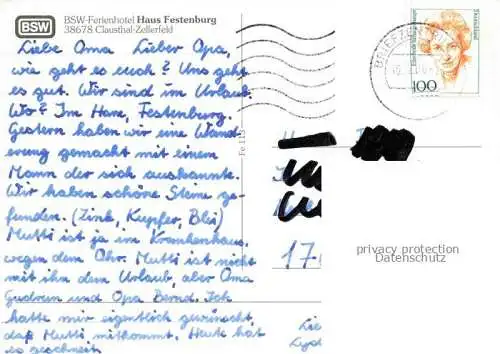 BSW
BSW-Ferienhotel Haus Festenburg
38678 Clausthal-Zellerfeld
Liebe Oma Lieber Opa,
wie geht es euch? Uns geht
es gut. Wir sind im Urlaub.
Wo? Im Harz, Festenburg.
Gestern haben wir eine Wand-
erung gemacht mit einem
Mann der sich auskannte.
Wir haben schöne Steine ge-
funden. (Zink, Kupfer, Blei)
Mutti ist ja im Krankenhaus,
wegen dem Ohr. Mutti ist nicht
mit ihn dem Urlaub, aber Oma
Gudrun und Opa Bernd. Ich
hatte mir eigentlich gewünscht,
daß Mutti, mitkommt. Heute hat
es geschneit
Fe 113
BRIEFZENTRUM
Deutschland
100
17
Lie
Lyd
privacy protection
Datenschutz